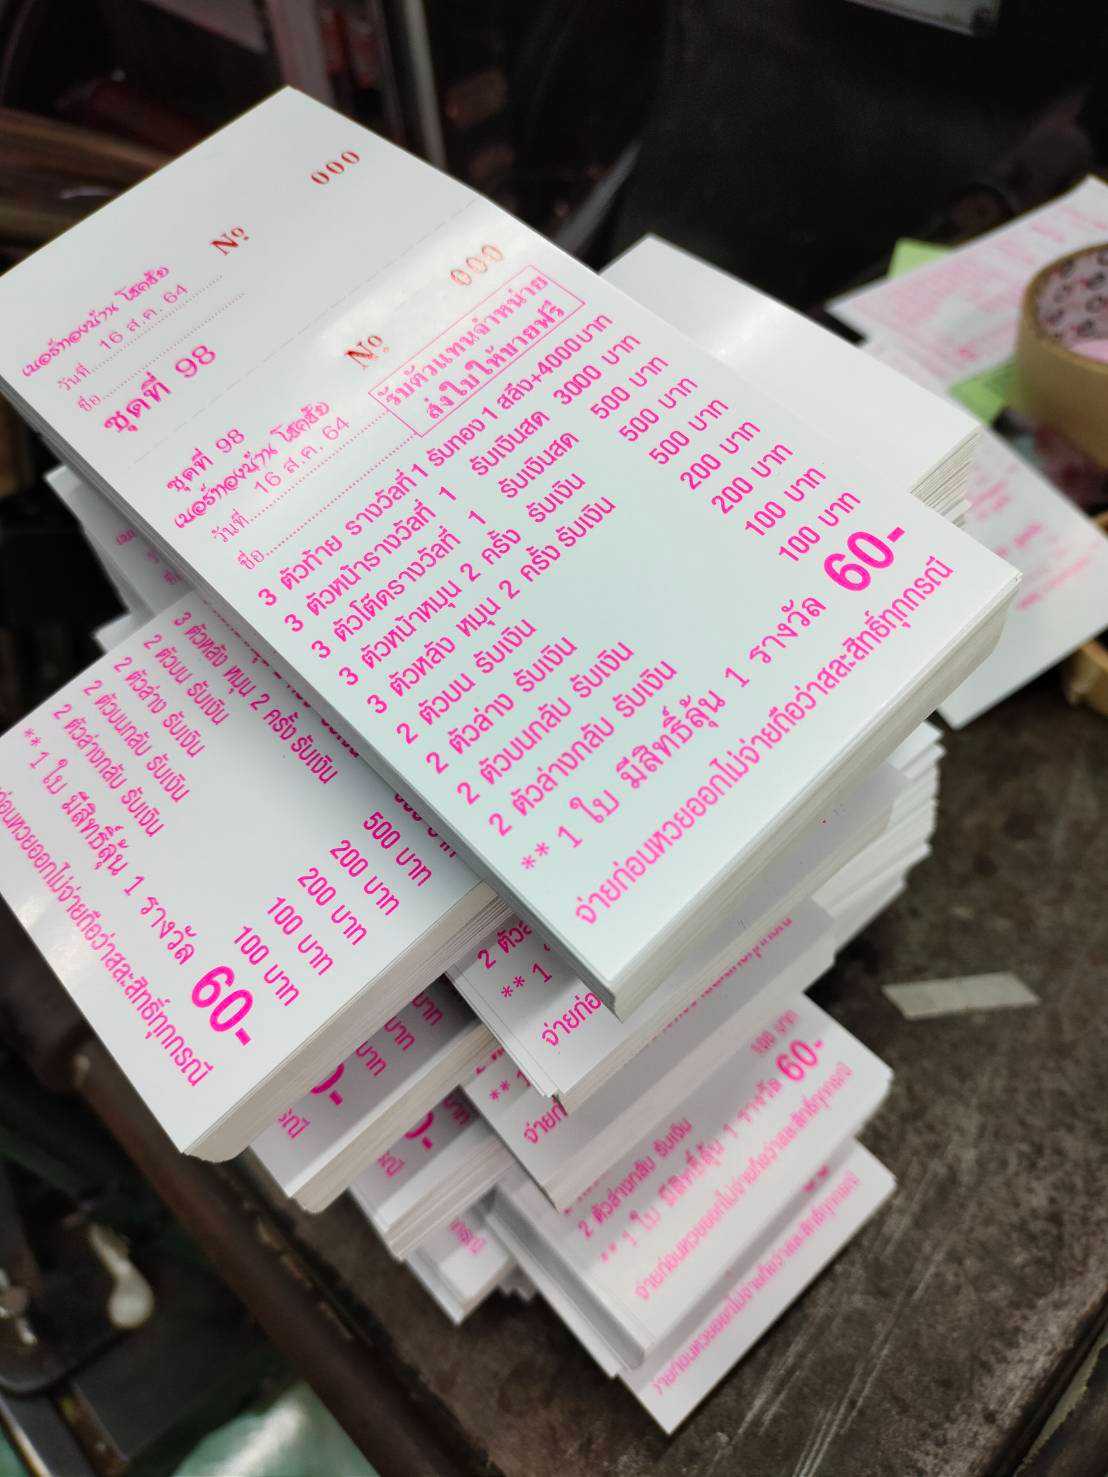 000
Nº
เบอร์ทองบ้าน โชคชัย
วันที่ 16 ส.ค. 64
ชื่อ
ชุดที่ 98
000
Nº
รับตัวแทนจำหน่าย
ส่งใบให้ขายฟรี
ชุดที่ 98
เบอร์ทองบ้าน โชคชัย
วันที่ 16 ส.ค. 64
ชื่อ
3 ตัวท้าย รางวัลที่ 1 รับทอง 1 สลึง+4000บาท
3 ตัวหน้ารางวัลที่ 1 รับเงินสด 3000 บาท
3 ตัวโต๊ดรางวัลที่ 1 รับเงินสด 500 บาท
3 ตัวหน้าหมุน 2 ครั้ง รับเงิน 500 บาท
3 ตัวหลัง หมุน 2 ครั้ง รับเงิน 500 บาท
2 ตัวบน รับเงิน 200 บาท
2 ตัวล่าง รับเงิน 200 บาท
2 ตัวบนกลับ รับเงิน 100 บาท
2 ตัวล่างกลับ รับเงิน 100 บาท
** 1 ใบ มีสิทธิ์ลุ้น 1 รางวัล 60-
จ่ายก่อนหวยออกไม่จ่ายถือว่าสละสิทธิ์ทุกกรณี
3 ตัวหลัง หมุน 2 ครั้ง รับเงิน 500 บาท
2 ตัวบน รับเงิน 200 บาท
2 ตัวล่าง รับเงิน 200 บาท
2 ตัวบนกลับ รับเงิน 100 บาท
2 ตัวล่างกลับ รับเงิน 100 บาท
** 1 ใบ มีสิทธิ์ลุ้น 1 รางวัล 60-
จ่ายก่อนหวยออกไม่จ่ายถือว่าสละสิทธิ์ทุกกรณี
100 บาท
2 ตัวล่างกลับ รับเงิน
** 1 ใบ มีสิทธิ์ลุ้น 1 รางวัล 60-
จ่ายก่อนหวยออกไม่จ่ายถือว่าสละสิทธิ์ทุกกรณี